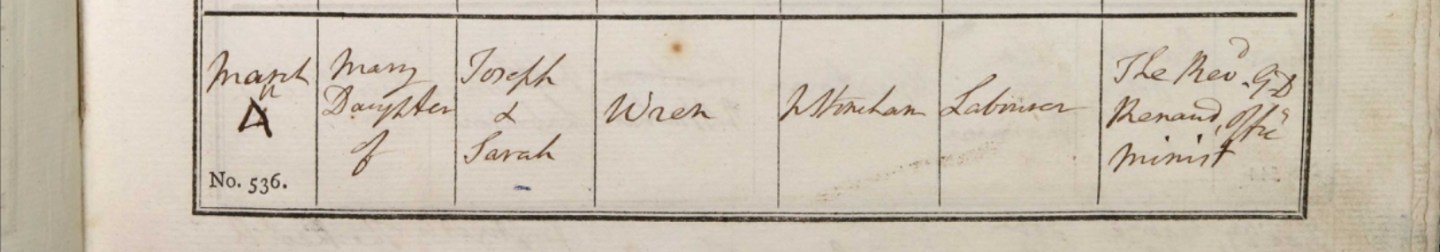 March
No. 536.
Mary
Daughter
of
Joseph
&
Sarah
Wren
Labourer
The Revd. G D
Renaud, Offic
Minist